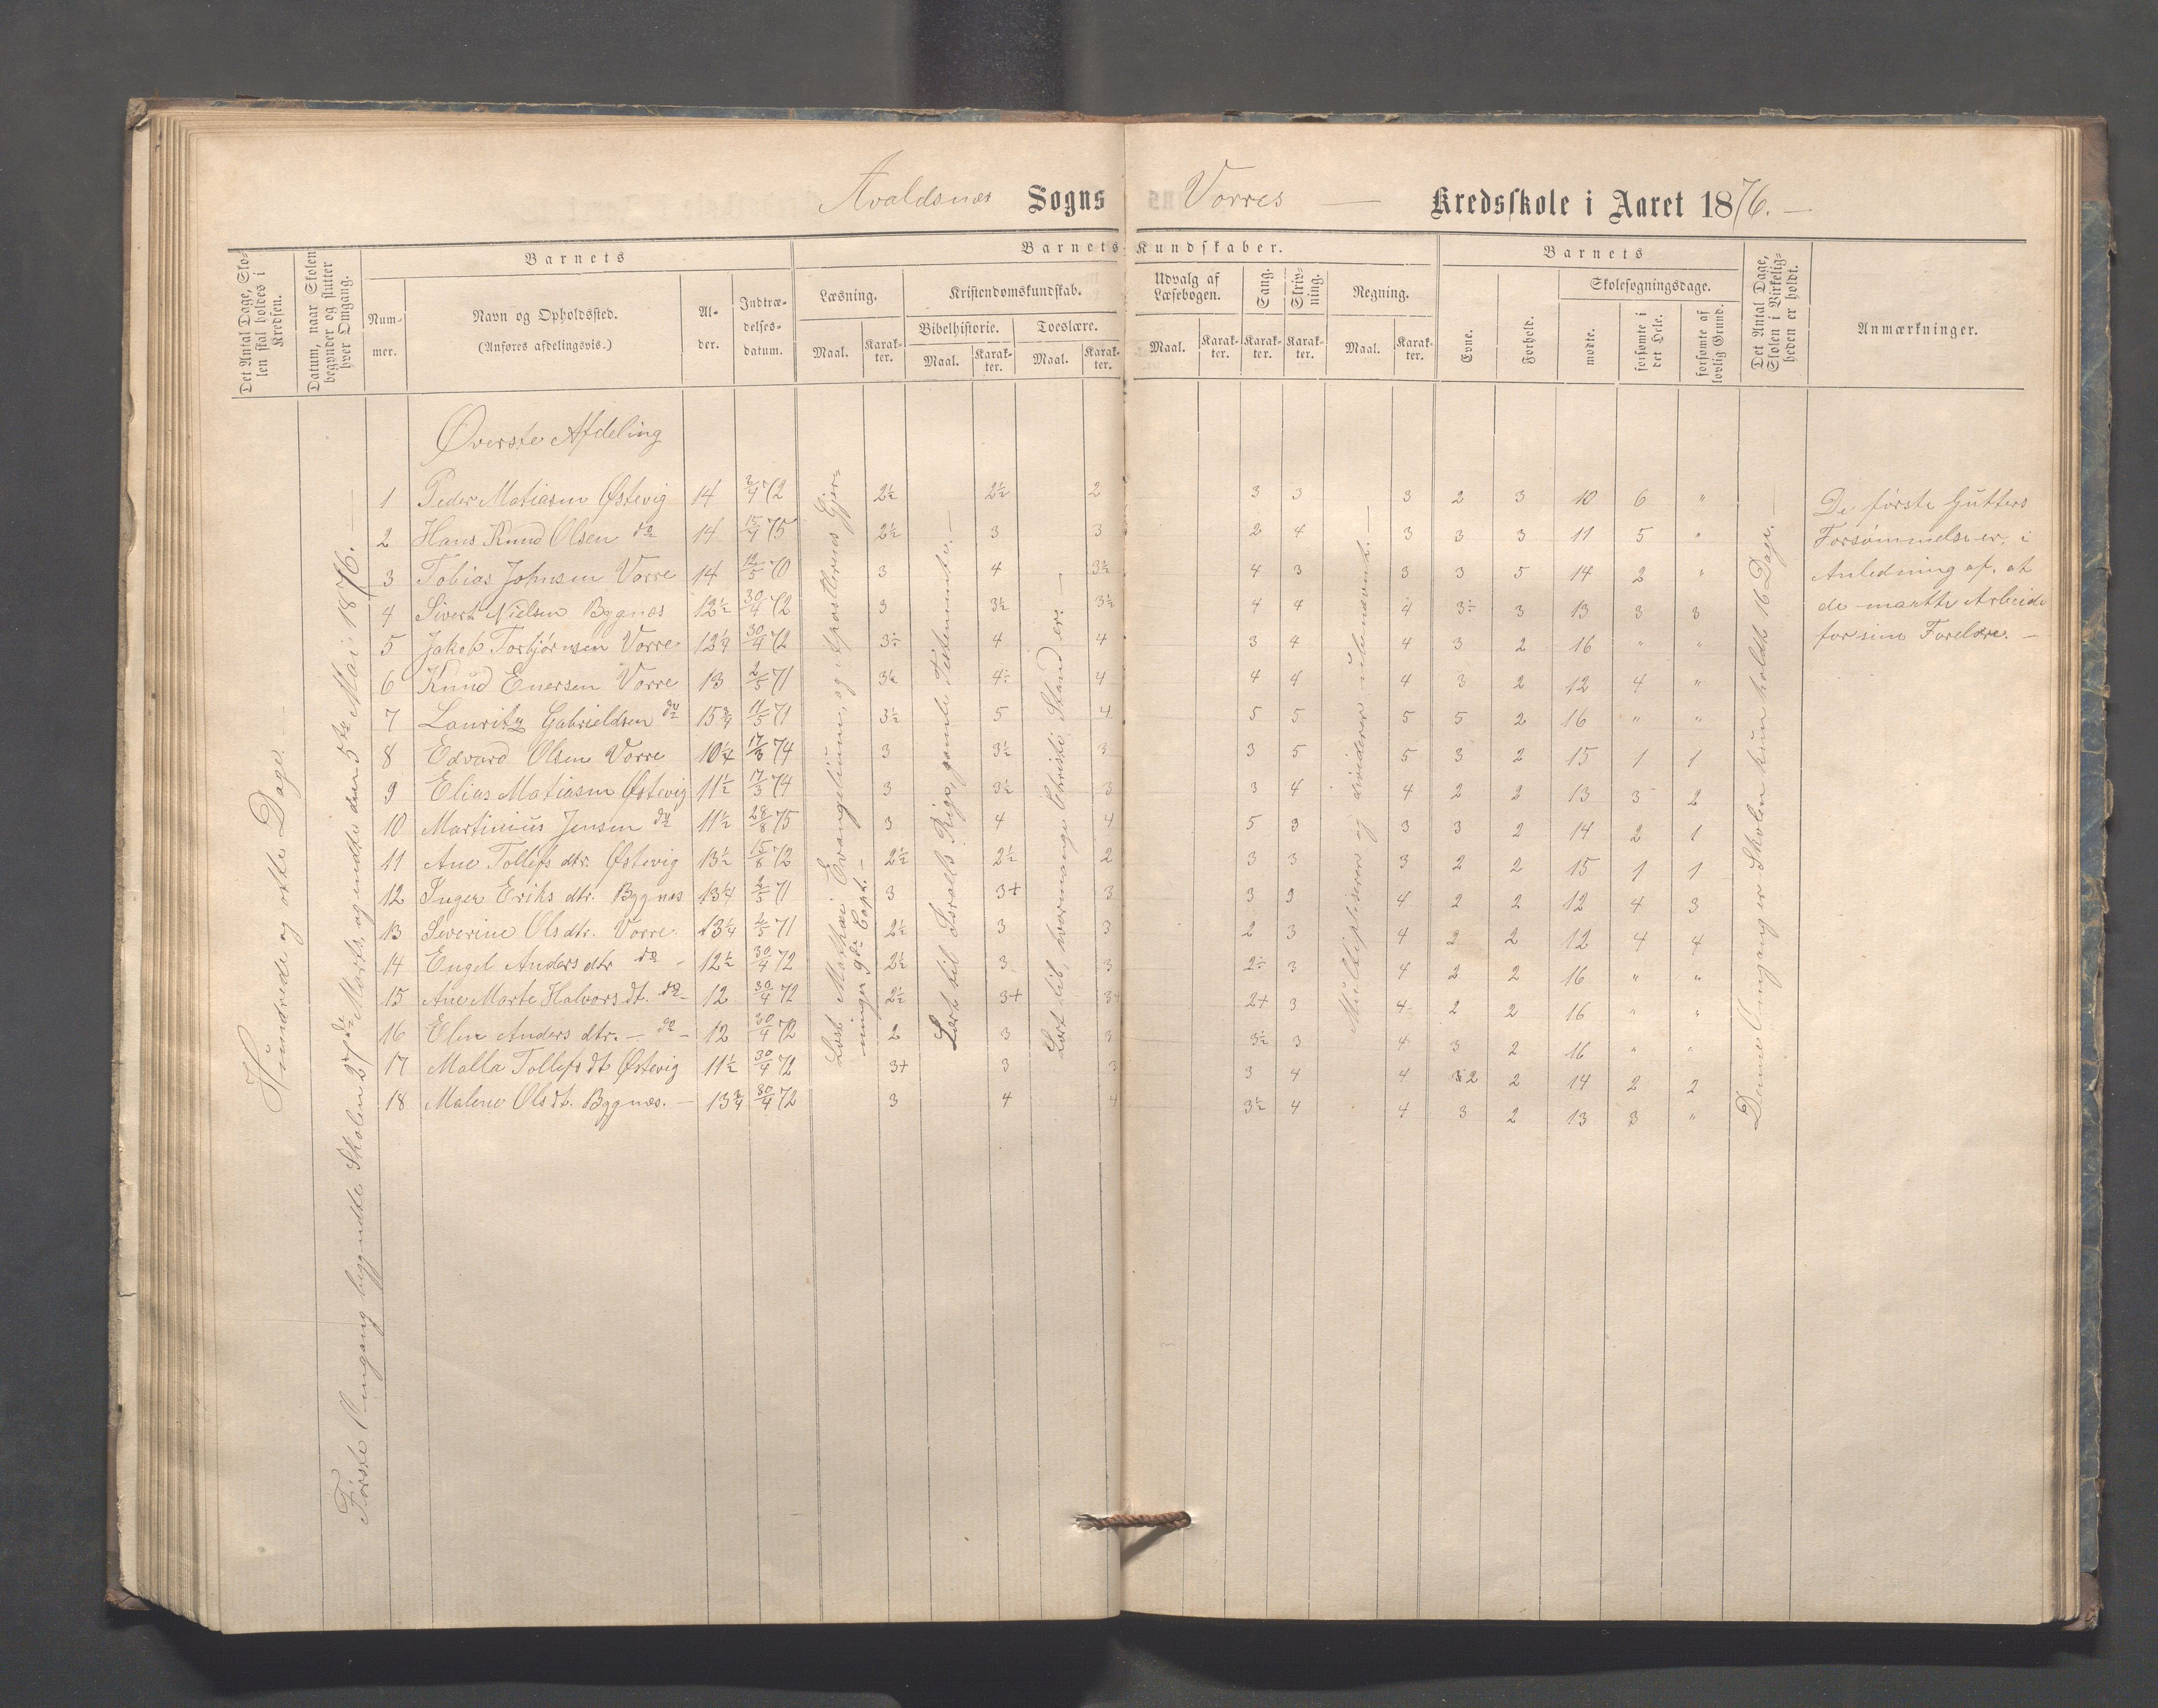 Avaldsnes Sogns Vorres — Kredsskole i Aaret 1876. —
Det Antal Dage, Skolen skal holdes i Kredsen.
Datum, naar Skolen begynder og slutter hver Omgang.
Barnets
Nummer.
Navn og Opholdssted.
(Anføres afdelingsvis.)
Alder.
Indtrædelsesdatum.
Barnets Kundskaber.
Læsning.
Maal. Karakter.
Kristendomskundskab.
Bibelhistorie.
Maal. Karakter.
Troeslære.
Maal. Karakter.
Udvalg af Læsebogen.
Maal. Karakter.
Sang.
Karakter.
Skrivning.
Karakter.
Regning.
Maal. Karakter.
Barnets
Evne.
Forhold.
Skolesøgningsdage.
mødte.
forsømte i det Hele.
forsømte af lovlig Grund.
Det Antal Dage, Skolen i Virkeligheden er holdt.
Anmærkninger.
Hundrede og otte Dage.
Første Omgang begyndte Skolen 27de Marts, og endte den 5te Mai 1876. —
Øverste Afdeling
1 Peder Matiasen Østevig 14 2/4 72 2½ 2½ 2 3 3 3 2 3 10 6 "
2 Hans Knud Olsen do 14 15/4 75 2½ 3 3 2 4 3 3 3 11 5 "
3 Tobias Johnsen Vorre 14 12/5 70 3 4 3½ 4 3 3 3 5 14 2 "
4 Sivert Nielsen Bygnes 12½ 30/4 72 3 3½ 3½ 4 4 4 3÷ 3 13 3 3
5 Jakob Torbjørnsen Vorre 12¼ 30/4 72 3÷ 4 4 3 4 4 3 2 16 " "
6 Knud Enersen Vorre 13 2/5 71 3½ 4÷ 4 4 4 4 3 2 12 4 "
7 Lauritz Gabrieldsen do 15¾ 11/5 71 3½ 5 4 5 5 5 5 2 16 " "
8 Edvard Olsen Vorre 10¼ 17/3 74 3 3½ 3 3 5 5 3 2 15 1 1
9 Elias Matiasen Østevig 11½ 17/3 74 3 3½ 3 3 4 4 2 2 13 3 2
10 Martinius Jensen do 11½ 28/8 75 3 4 4 5 3 3 3 2 14 2 1
11 Ane Tollefs dtr. Østevig 13½ 15/8 72 2½ 2½ 2 3 3 3 2 2 15 1 1
12 Inger Eriks dtr. Bygnes 13¼ 2/5 71 3 3+ 3 3 3 4 2 2 12 4 3
13 Severine Ols dtr. Vorre. 13¼ 2/5 71 2½ 3 3 2 3 4 2 2 12 4 4
14 Engel Anders dtr do - 12½ 30/4 72 2½ 3 3 2÷ 3 4 2 2 16 " "
15 Ane Marte Halvors dt. do - 12 30/4 72 2½ 3+ 3+ 2+ 3 4 2 2 16 " "
16 Elen Anders dtr. — do - 12 30/4 72 2 3 3 3½ 3 4 3 2 16 " "
17 Malla Tollefs dt Østevig 11½ 30/4 72 3+ 3 3 3 4 4 2 2 14 2 2
18 Malene Ols dt. Bygnes. — 13¾ 30/4 72 3 4 4 3½ 4 4 3 2 13 3 "
Læst Mathæi Evangelium, og Apostlernes Gjerninger 9de Capt. —
Læst til Israels Rige, gamle Testemente. —
Læst til, hvormange Christi Stand er. —
Multiplisere og dividere ubenævnt. —
Denne Omgang er Skolen kun holdt 16 Dage. —
De første Gutters
Forsømmelser, i
Anledning af, at
de maatte Arbeide
for sine Foreldre. —